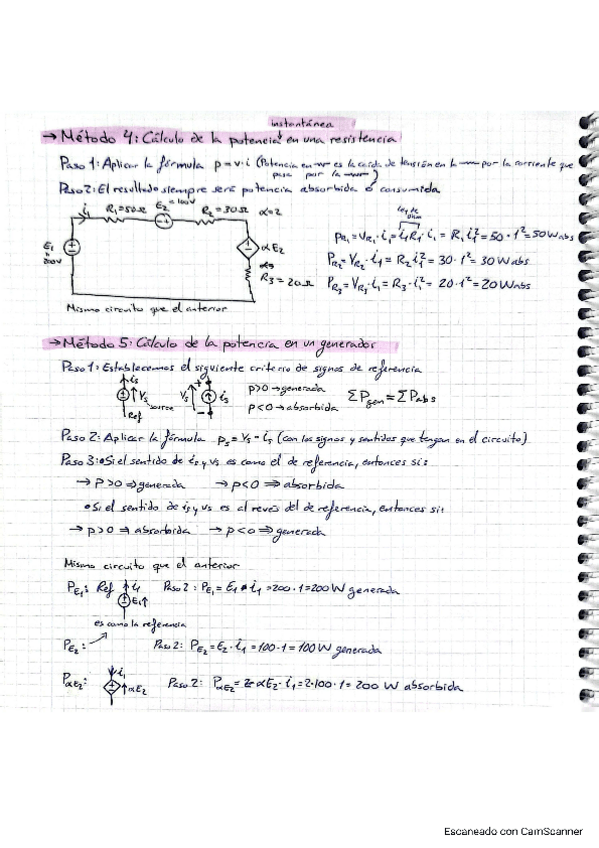 instantánea
→ Método 4: Cálculo de la potencia en una resistencia
Paso 1: Aplicar la fórmula p = v·i (Potencia en es la caída de tensión en la por la corriente que
pasa por la )
Paso 2: El resultado siempre será potencia absorbida ó consumida
i₁ R₁=50Ω E₂=100V R₂=30Ω α=2
E₁ αE₂
R₃=20Ω
Ley de Ohm
PR₁=VR₁·i₁=i₁R₁·i₁=R₁i₁²=50·1²=50W abs
PR₂=VR₂·i₁=R₂i₁²=30·1²=30W abs
PR₃=VR₃·i₁=R₃·i₁²=20·1²=20W abs
Mismo circuito que el anterior
→ Método 5: Cálculo de la potencia en un generador
Paso 1: Establecemos el siguiente criterio de signos de referencia
is Vs source Ref Vs + - is
p>0 → generada
p<0 → absorbida
ΣPgen = ΣPabs
Paso 2: Aplicar la fórmula ps = Vs · is (con los signos y sentidos que tengan en el circuito)
Paso 3: • Si el sentido de is y vs es como el de referencia, entonces si:
→ P>0 ⇒ generada → p<0 ⇒ absorbida
• Si el sentido de is y vs es al revés del de referencia, entonces si:
→ p>0 ⇒ absorbida → p<0 ⇒ generada
Mismo circuito que el anterior
PE₁: Ref i₁ E₁ Paso 2: PE₁=E₁·i₁=200·1=200W generada
es como la referencia
PE₂: Paso 2: PE₂=E₂·i₁=100·1=100W generada
PαE₂: i₁ αE₂ Paso 2: PαE₂=αE₂·i₁=2·100·1=200 W absorbida
Escaneado con CamScanner